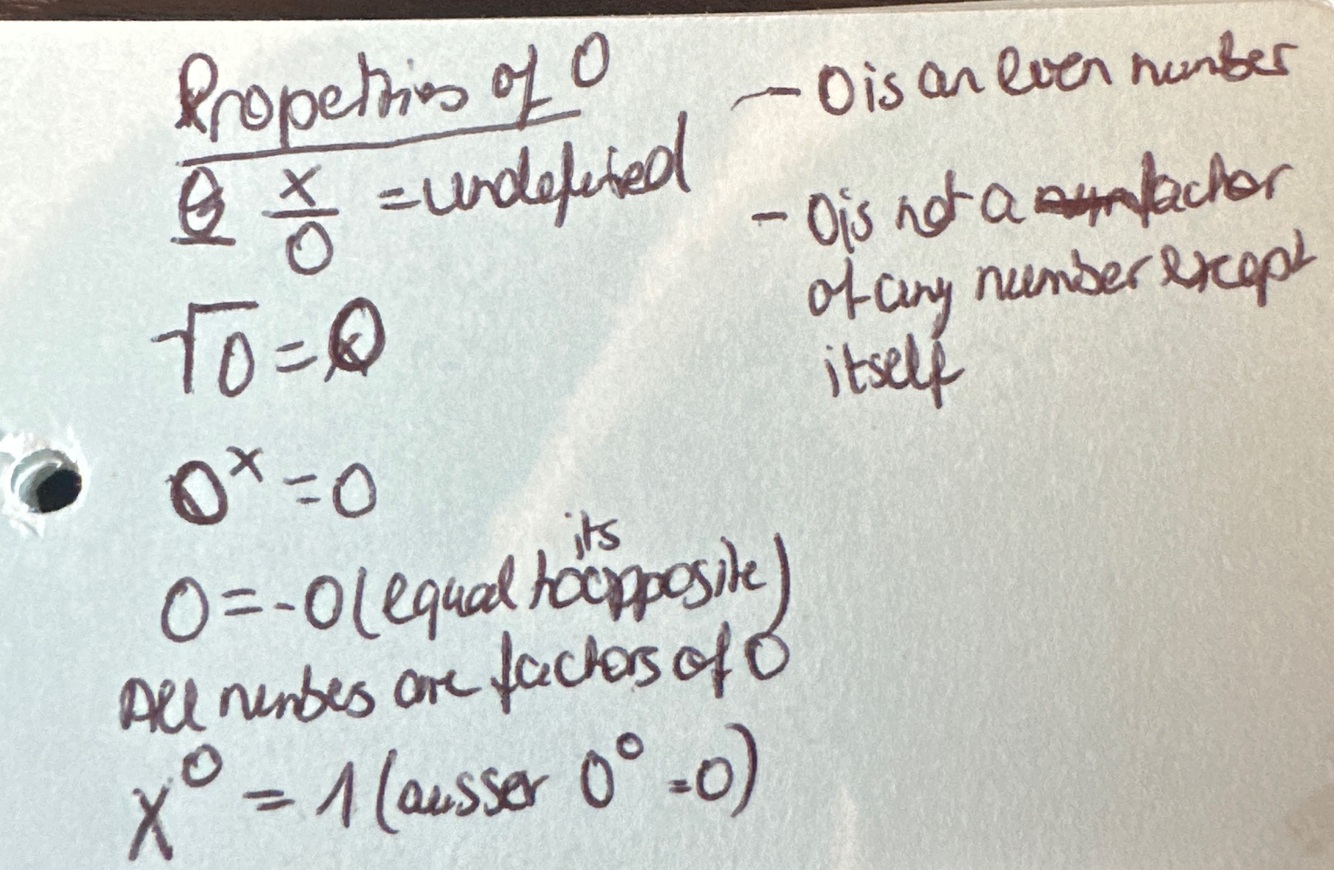 Propetries of 0
x/0 = undefined
√0 = 0
0^x = 0
0 = -0 (equal to its opposite)
All numbes are factors of 0
x^0 = 1 (ausser 0^0 = 0)
- 0 is an even number
- 0 is not a factor
of any number except
itself